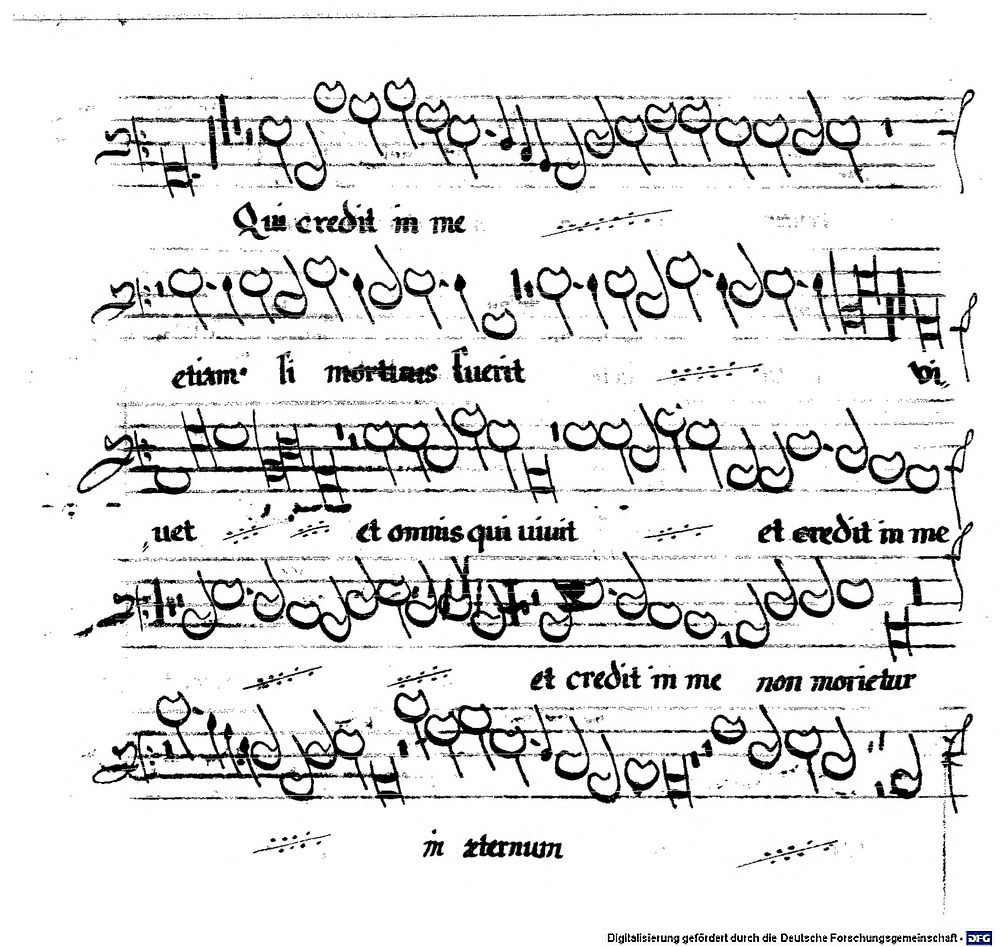 Qui credit in me
etiam si mortuus fuerit vi
uet et omnis qui uiuit et credit in me
et credit in me non morietur
in æternum
Digitalisierung gefördert durch die Deutsche Forschungsgemeinschaft - DFG